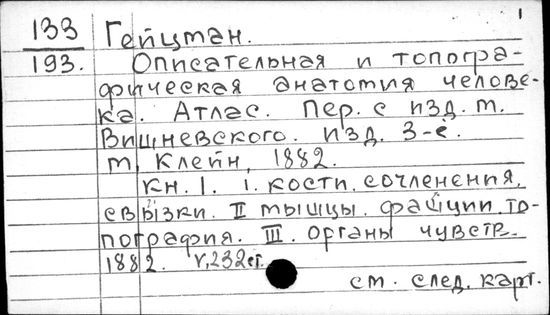 1
133 Гейцман.
193. Описательная и топогра-
фическая анатомия челове-
ка. Атлас. Пер. с изд. т.
Вишневского. изд. 3-е.
т, Клейн, 1882.
кн. 1. i. кости. сочленения,
связки. II мышцы. фасции. то-
пография. III. органы чувств.
1882. V, 232 ст.
ст. след. карт.